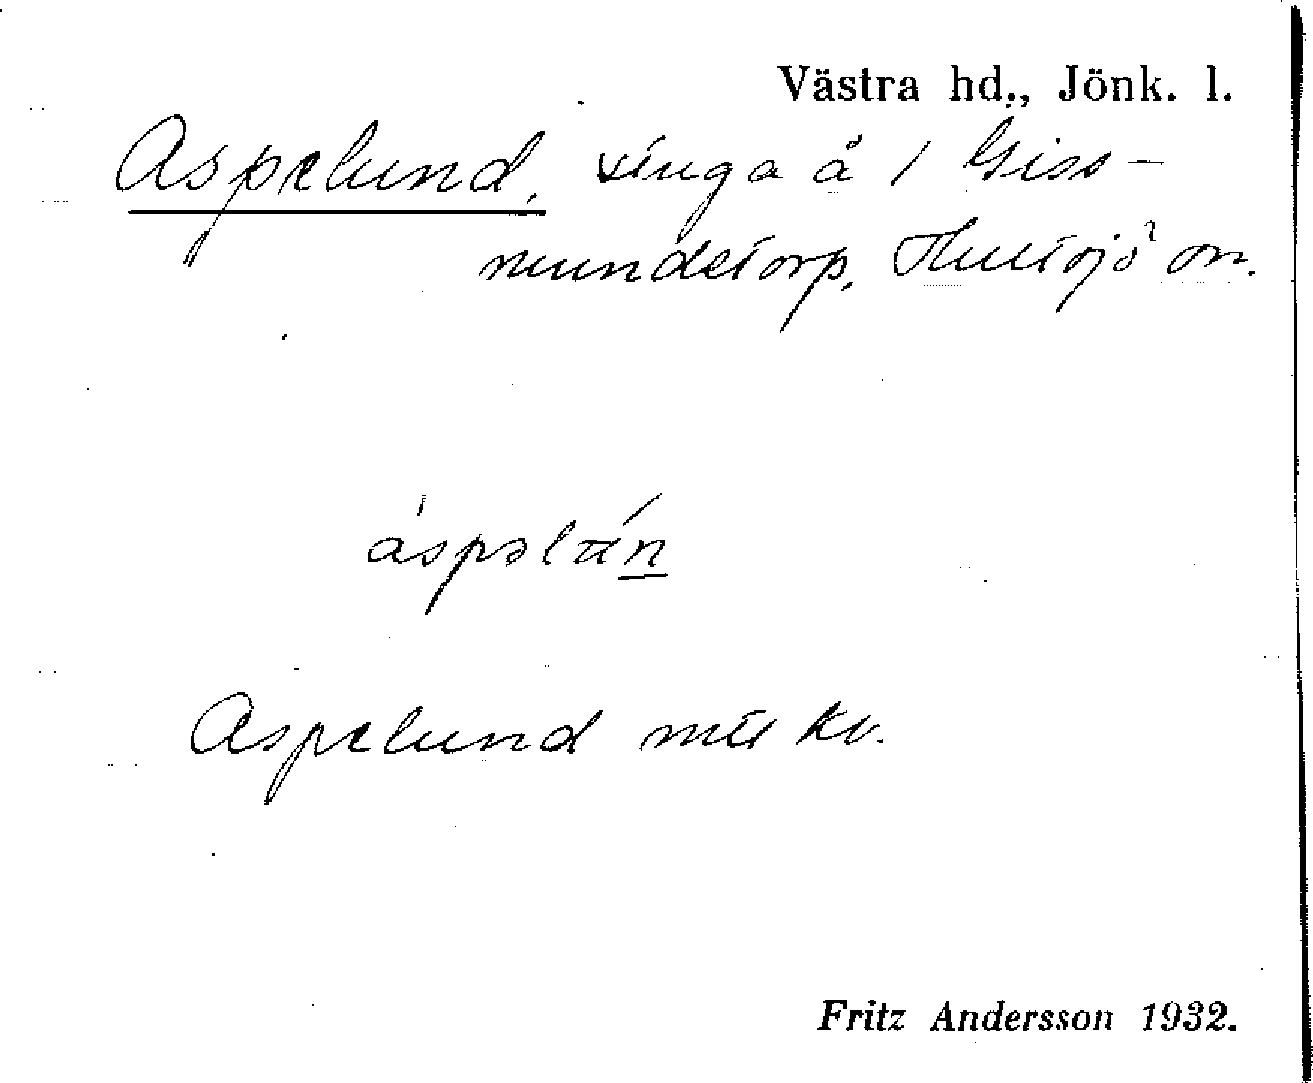 Västra hd., Jönk. l.
Aspelund, stuga å 1 Giss-
mundstorp, Hultsjö sn.
áspəlún
Aspelund mtl kv.
Fritz Andersson 1932.